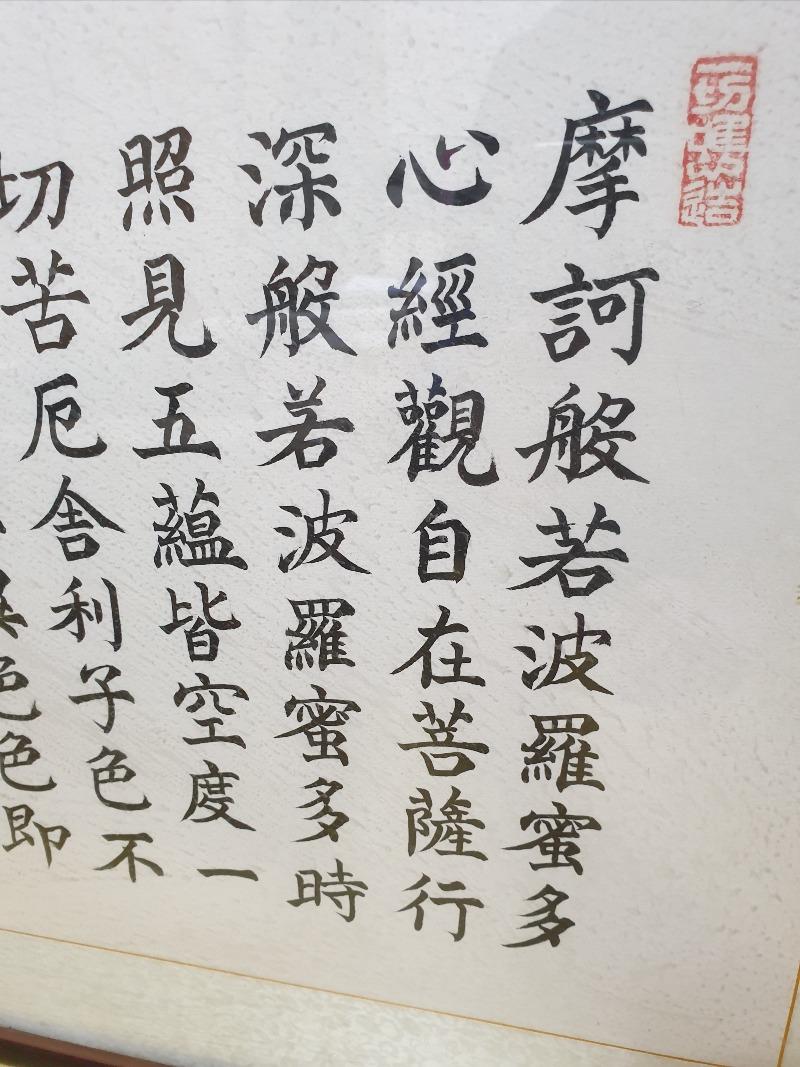 一切唯心造
摩訶般若波羅蜜多
心經觀自在菩薩行
深般若波羅蜜多時
照見五蘊皆空度一
切苦厄舍利子色不
異色色即